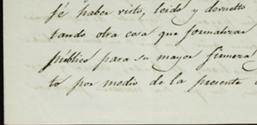 fé haber visto, leido y devuelto
tando otra cosa que formalizar
público para su mayor firmeza
to por medio de la presente